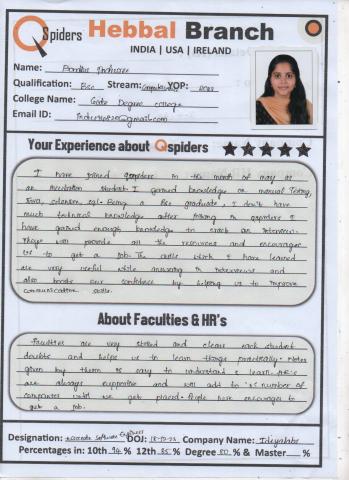 Qspiders Hebbal Branch
INDIA | USA | IRELAND
Name:
Qualification: Bsc Stream: YOP:
College Name: Degree college
Email ID:
Your Experience about Qspiders
I have joined qspiders in the month of may as
an student. I gained knowledge on manual Testing,
Java, selenium, sql. Being a Bsc graduate, I don't have
much technical knowledge after joining in qspiders I
have gained enough knowledge to crack an interview.
They will provide all the resources and encourages
us to get a job. The skills which I have learned
are very useful while answering in interviews and
also boosts our confidence by helping us to improve
communication skills.
About Faculties & HR's
Faculties are very skilled and clears each student
doubts and helps us to learn things practically. Notes
given by them is easy to understand & learn. HR's
are always supportive and will add to us number of
companies until we get placed. People here encourages to
get a job.
Designation: Associate Software Engineer DOJ: Company Name:
Percentages in: 10th 94 % 12th 85 % Degree 80 % & Master %